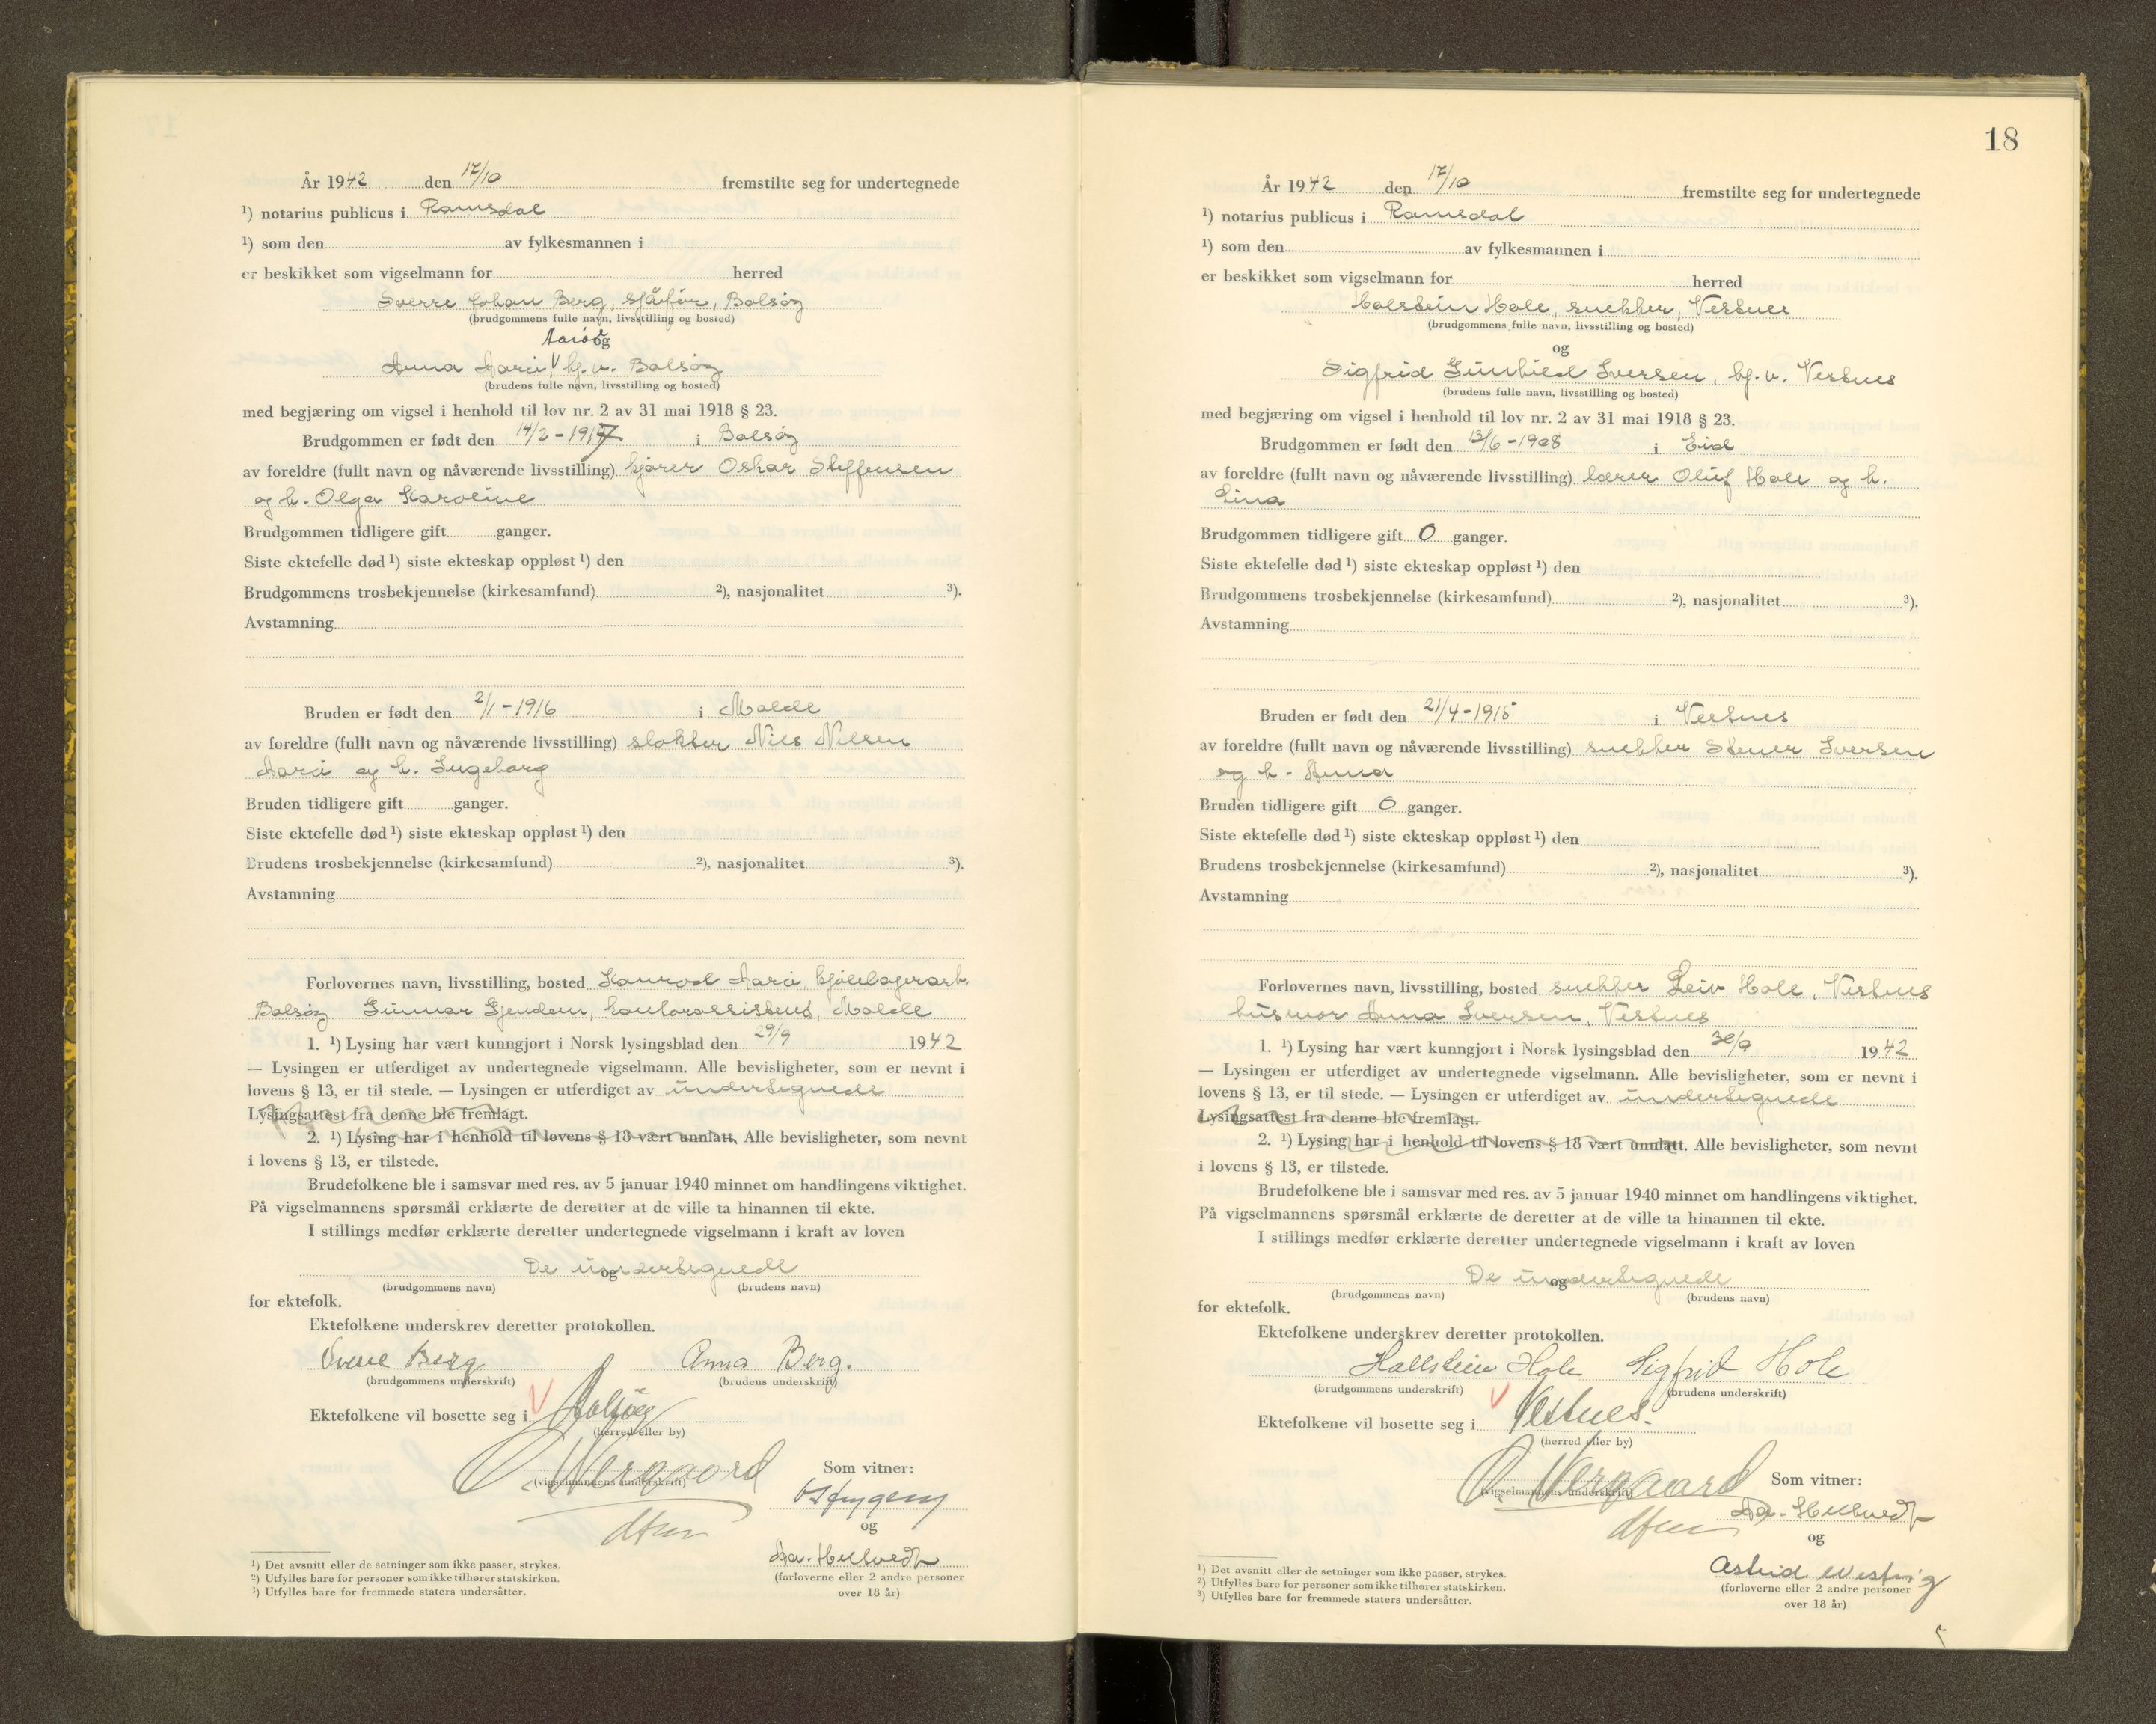 År 1942 den 17/10 fremstilte seg for undertegnede
¹) notarius publicus i Romsdal
¹) som den av fylkesmannen i
er beskikket som vigselmann for herred
Sverre Johan Berg, sjåfør, Bolsøy
(brudgommens fulle navn, livsstilling og bosted)
og
Anna hj.v. Bolsøy
(brudens fulle navn, livsstilling og bosted)
med begjæring om vigsel i henhold til lov nr. 2 av 31 mai 1918 § 23.
Brudgommen er født den 14/2-1917 i Bolsøy
av foreldre (fullt navn og nåværende livsstilling) kjører Oskar Steffensen
og h. Olga Karoline
Brudgommen tidligere gift ganger.
Siste ektefelle død ¹) siste ekteskap oppløst ¹) den
Brudgommens trosbekjennelse (kirkesamfund) ²), nasjonalitet ³).
Avstamning
Bruden er født den 2/1-1916 i Molde
av foreldre (fullt navn og nåværende livsstilling) slakter Nils Nilsen
og h. Ingeborg
Bruden tidligere gift ganger.
Siste ektefelle død ¹) siste ekteskap oppløst ¹) den
Brudens trosbekjennelse (kirkesamfund) ²), nasjonalitet ³).
Avstamning
Forlovernes navn, livsstilling, bosted Konrad kjølelagerarb.
Bolsøy Gunnar Gjendem, kontorassistent, Molde
1. ¹) Lysing har vært kunngjort i Norsk lysingsblad den 29/9 1942
— Lysingen er utferdiget av undertegnede vigselmann. Alle bevisligheter, som er nevnt i
lovens § 13, er til stede. — Lysingen er utferdiget av undertegnede
Lysingsattest fra denne ble fremlagt.
2. ¹) Lysing har i henhold til lovens § 18 vært unnlatt. Alle bevisligheter, som nevnt
i lovens § 13, er tilstede.
Brudefolkene ble i samsvar med res. av 5 januar 1940 minnet om handlingens viktighet.
På vigselmannens spørsmål erklærte de deretter at de ville ta hinannen til ekte.
I stillings medfør erklærte deretter undertegnede vigselmann i kraft av loven
De undertegnede
og
(brudgommens navn) (brudens navn)
for ektefolk.
Ektefolkene underskrev deretter protokollen.
Sverre Berg Anna Berg.
(brudgommens underskrift) (brudens underskrift)
Ektefolkene vil bosette seg i Bolsøy
(herred eller by)
(vigselmannens underskrift)
Som vitner:
og
(forloverne eller 2 andre personer
over 18 år)
¹) Det avsnitt eller de setninger som ikke passer, strykes.
²) Utfylles bare for personer som ikke tilhører statskirken.
³) Utfylles bare for fremmede staters undersåtter.
18
År 1942 den 17/10 fremstilte seg for undertegnede
¹) notarius publicus i Romsdal
¹) som den av fylkesmannen i
er beskikket som vigselmann for herred
Halstein Hole, snekker, Vestnes
(brudgommens fulle navn, livsstilling og bosted)
og
Sigfrid Gunhild Iversen, hj.v. Vestnes
(brudens fulle navn, livsstilling og bosted)
med begjæring om vigsel i henhold til lov nr. 2 av 31 mai 1918 § 23.
Brudgommen er født den 13/6-1908 i Eid
av foreldre (fullt navn og nåværende livsstilling) lærer Oluf Hole og h.
Lina
Brudgommen tidligere gift 0 ganger.
Siste ektefelle død ¹) siste ekteskap oppløst ¹) den
Brudgommens trosbekjennelse (kirkesamfund) ²), nasjonalitet ³).
Avstamning
Bruden er født den 21/4-1915 i Vestnes
av foreldre (fullt navn og nåværende livsstilling) snekker Stener Iversen
og h. Anna
Bruden tidligere gift 0 ganger.
Siste ektefelle død ¹) siste ekteskap oppløst ¹) den
Brudens trosbekjennelse (kirkesamfund) ²), nasjonalitet ³).
Avstamning
Forlovernes navn, livsstilling, bosted snekker Leiv Hole, Vestnes
husmor Anna Iversen, Vestnes
1. ¹) Lysing har vært kunngjort i Norsk lysingsblad den 30/9 1942
— Lysingen er utferdiget av undertegnede vigselmann. Alle bevisligheter, som er nevnt i
lovens § 13, er til stede. — Lysingen er utferdiget av undertegnede
Lysingsattest fra denne ble fremlagt.
2. ¹) Lysing har i henhold til lovens § 18 vært unnlatt. Alle bevisligheter, som nevnt
i lovens § 13, er tilstede.
Brudefolkene ble i samsvar med res. av 5 januar 1940 minnet om handlingens viktighet.
På vigselmannens spørsmål erklærte de deretter at de ville ta hinannen til ekte.
I stillings medfør erklærte deretter undertegnede vigselmann i kraft av loven
De undertegnede
og
(brudgommens navn) (brudens navn)
for ektefolk.
Ektefolkene underskrev deretter protokollen.
Hallstein Hole Sigfrid Hole
(brudgommens underskrift) (brudens underskrift)
Ektefolkene vil bosette seg i Vestnes.
(herred eller by)
(vigselmannens underskrift)
Som vitner:
og
Astrid
(forloverne eller 2 andre personer
over 18 år)
¹) Det avsnitt eller de setninger som ikke passer, strykes.
²) Utfylles bare for personer som ikke tilhører statskirken.
³) Utfylles bare for fremmede staters undersåtter.